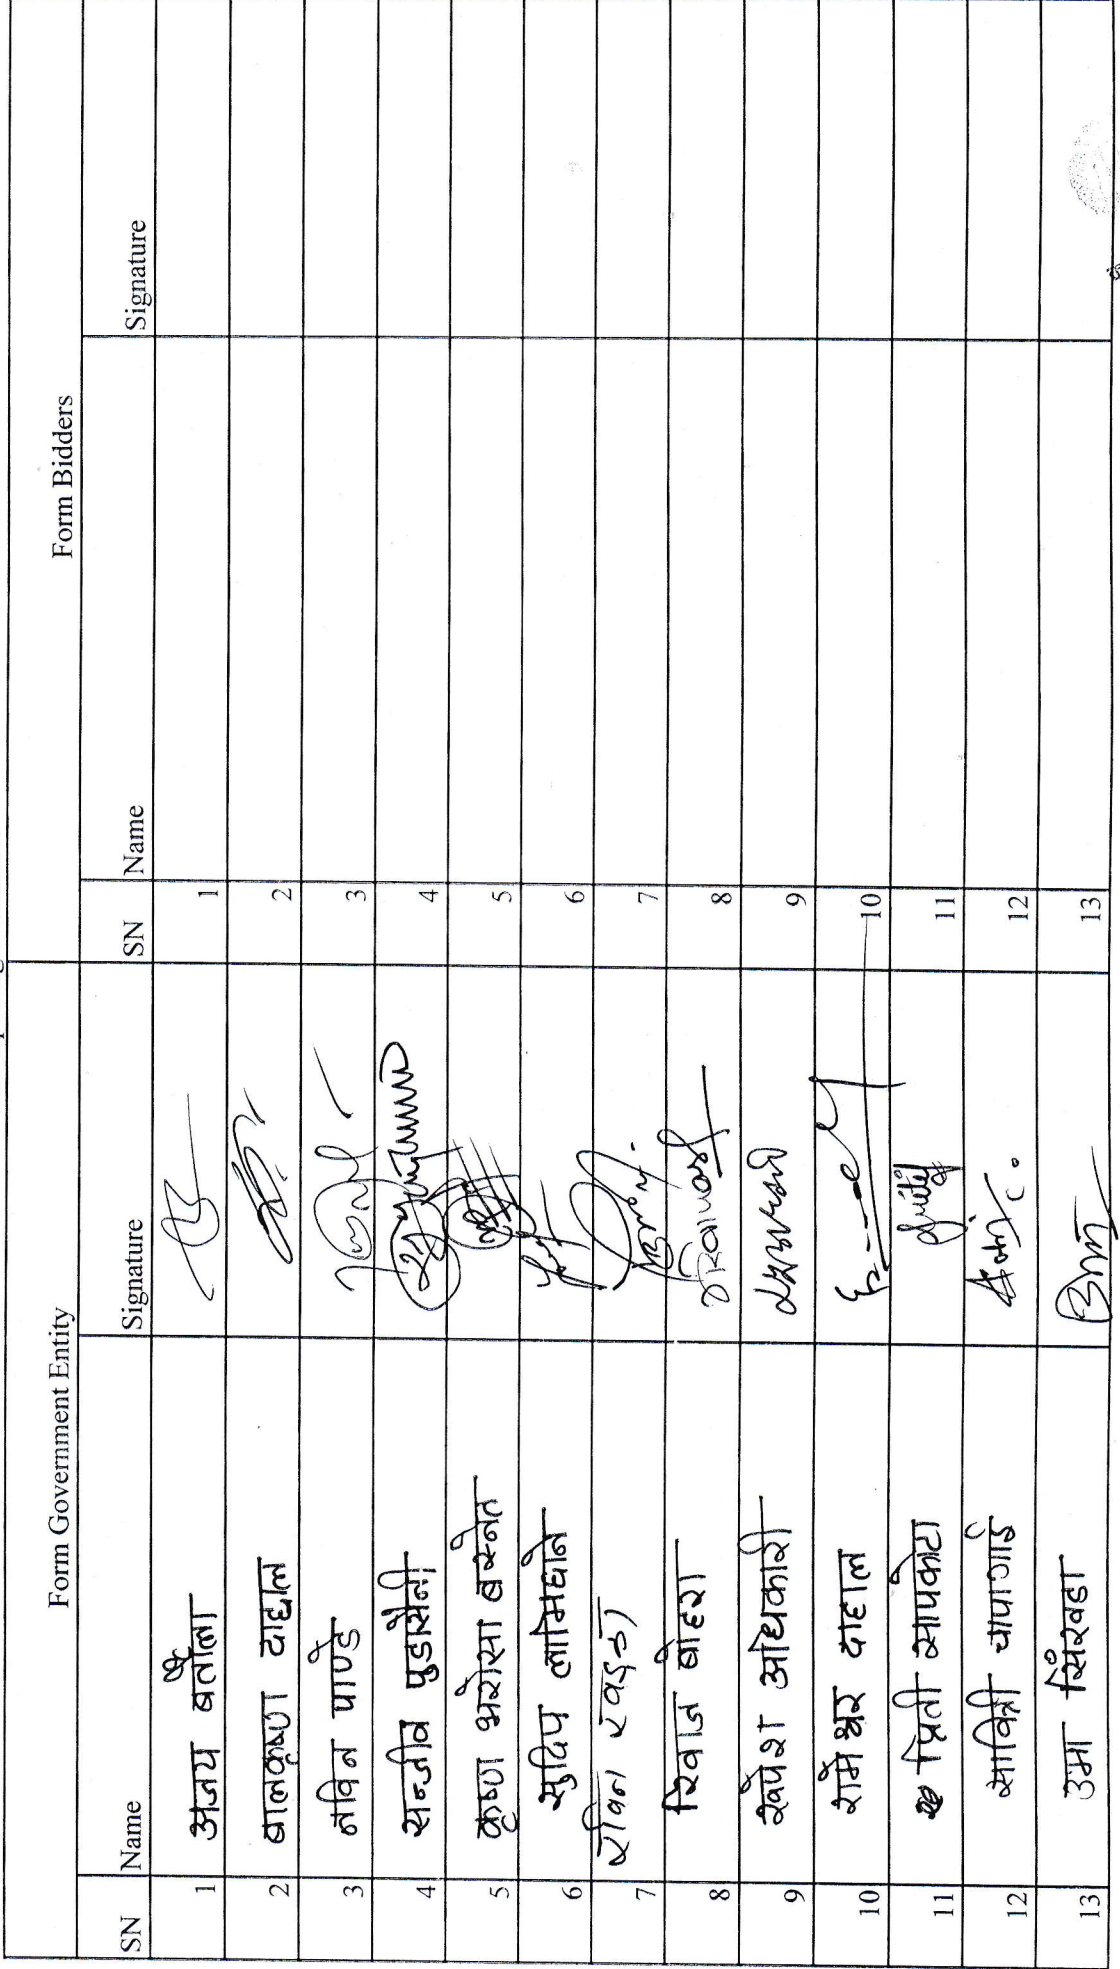 Form Government Entity Form Bidders
SN Name Signature SN Name Signature
1 अजय बर्ताैला 1
2 बालकृष्ण दाहाल 2
3 नविन पाण्डे 3
4 सन्जीव पुडासैनी 4
5 कृष्ण भरोसा बस्नेत 5
6 सुदिप लामिछाने 6
7 रविन खड्का 7
8 रिवाज बोहरा 8
9 अधिकारी 9
10 रामेश्वर दाहाल 10
11 प्रिती सापकोटा 11
12 सावित्री चापागाई 12
13 उमा सिरखडा 13